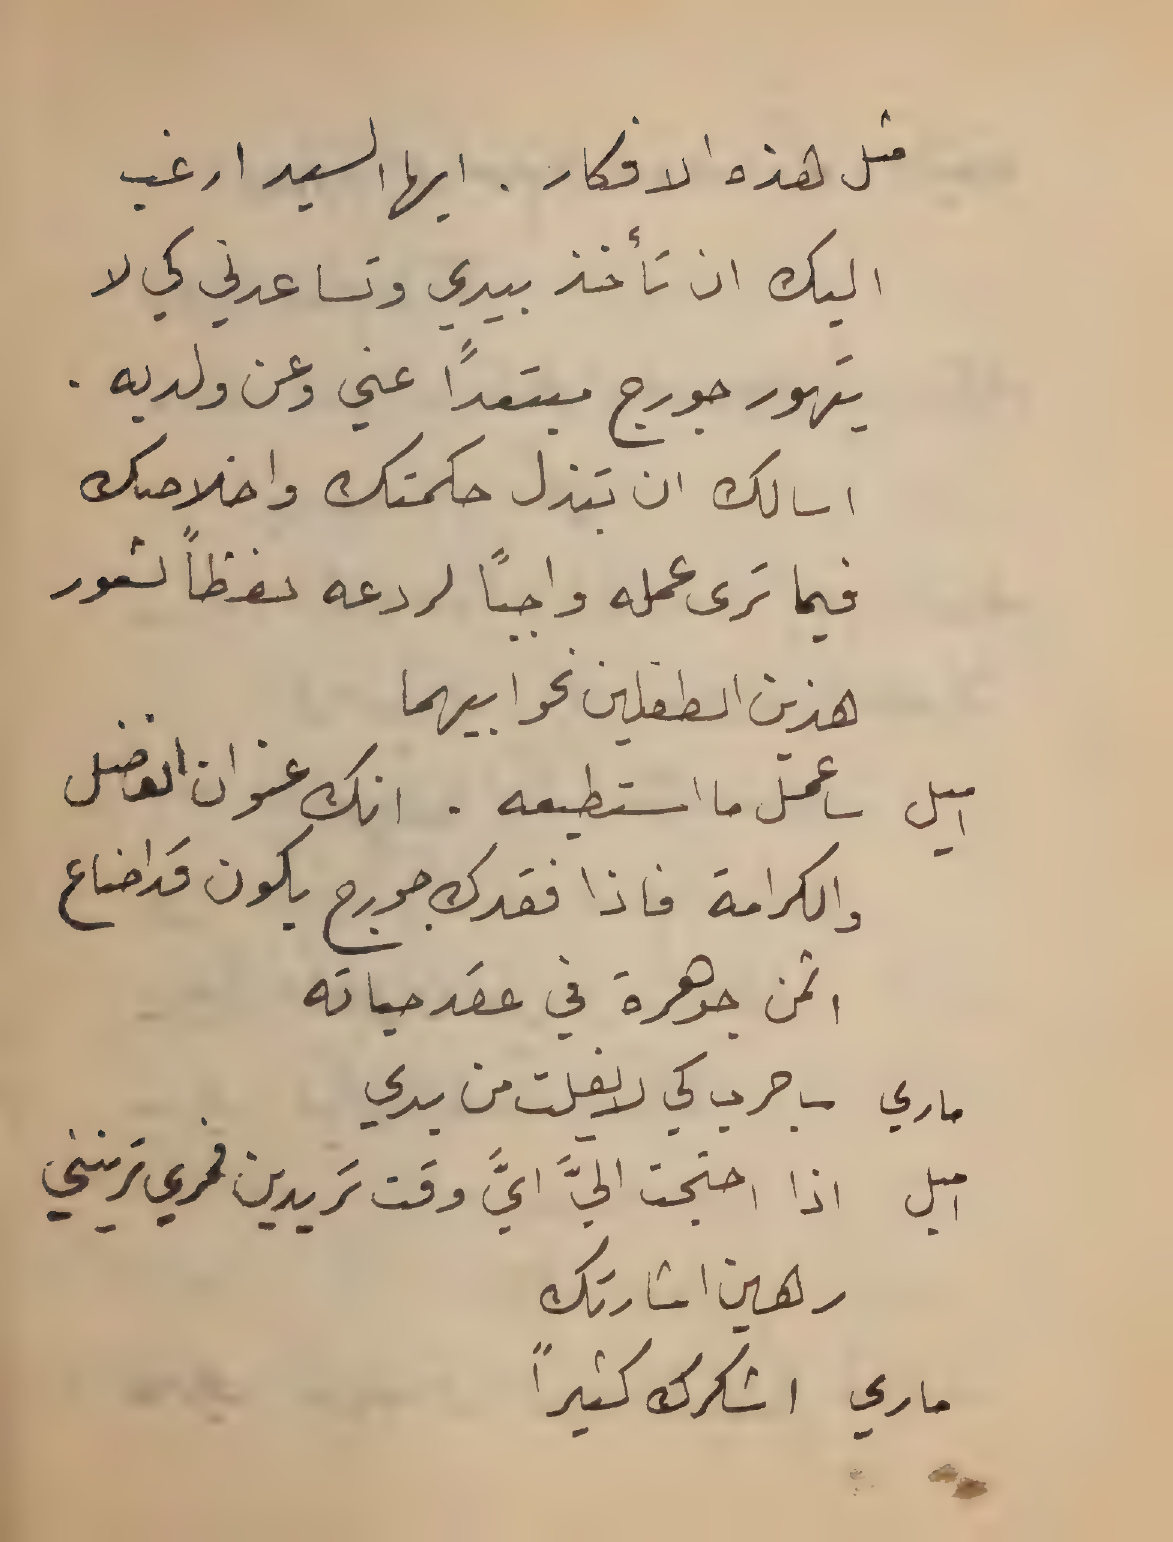 مثل هذه الافكار . ايها السيد ارغب
اليك ان تأخذ بيدي وتساعدني كي لا
يتهور جورج مبتعداً عني وعن ولديه .
اسالك ان تبذل حكمتك واخلاصك
فيما ترى عمله واجباً لردعه حفظاً لشعور
هذين الطفلين نحو ابيهما
اميل ساعمل ما استطيعه . انك عنوان الفضل
والكرامة فاذا فقدك جورج يكون قد اضاع
اثمن جوهرة في عقد حياته
ماري ساجرب كي لا يفلت من يدي
اميل اذا احتجت اليَّ ايَّ وقت تريدين فمري ترينني
رهين اشارتك
ماري اشكرك كثيراً